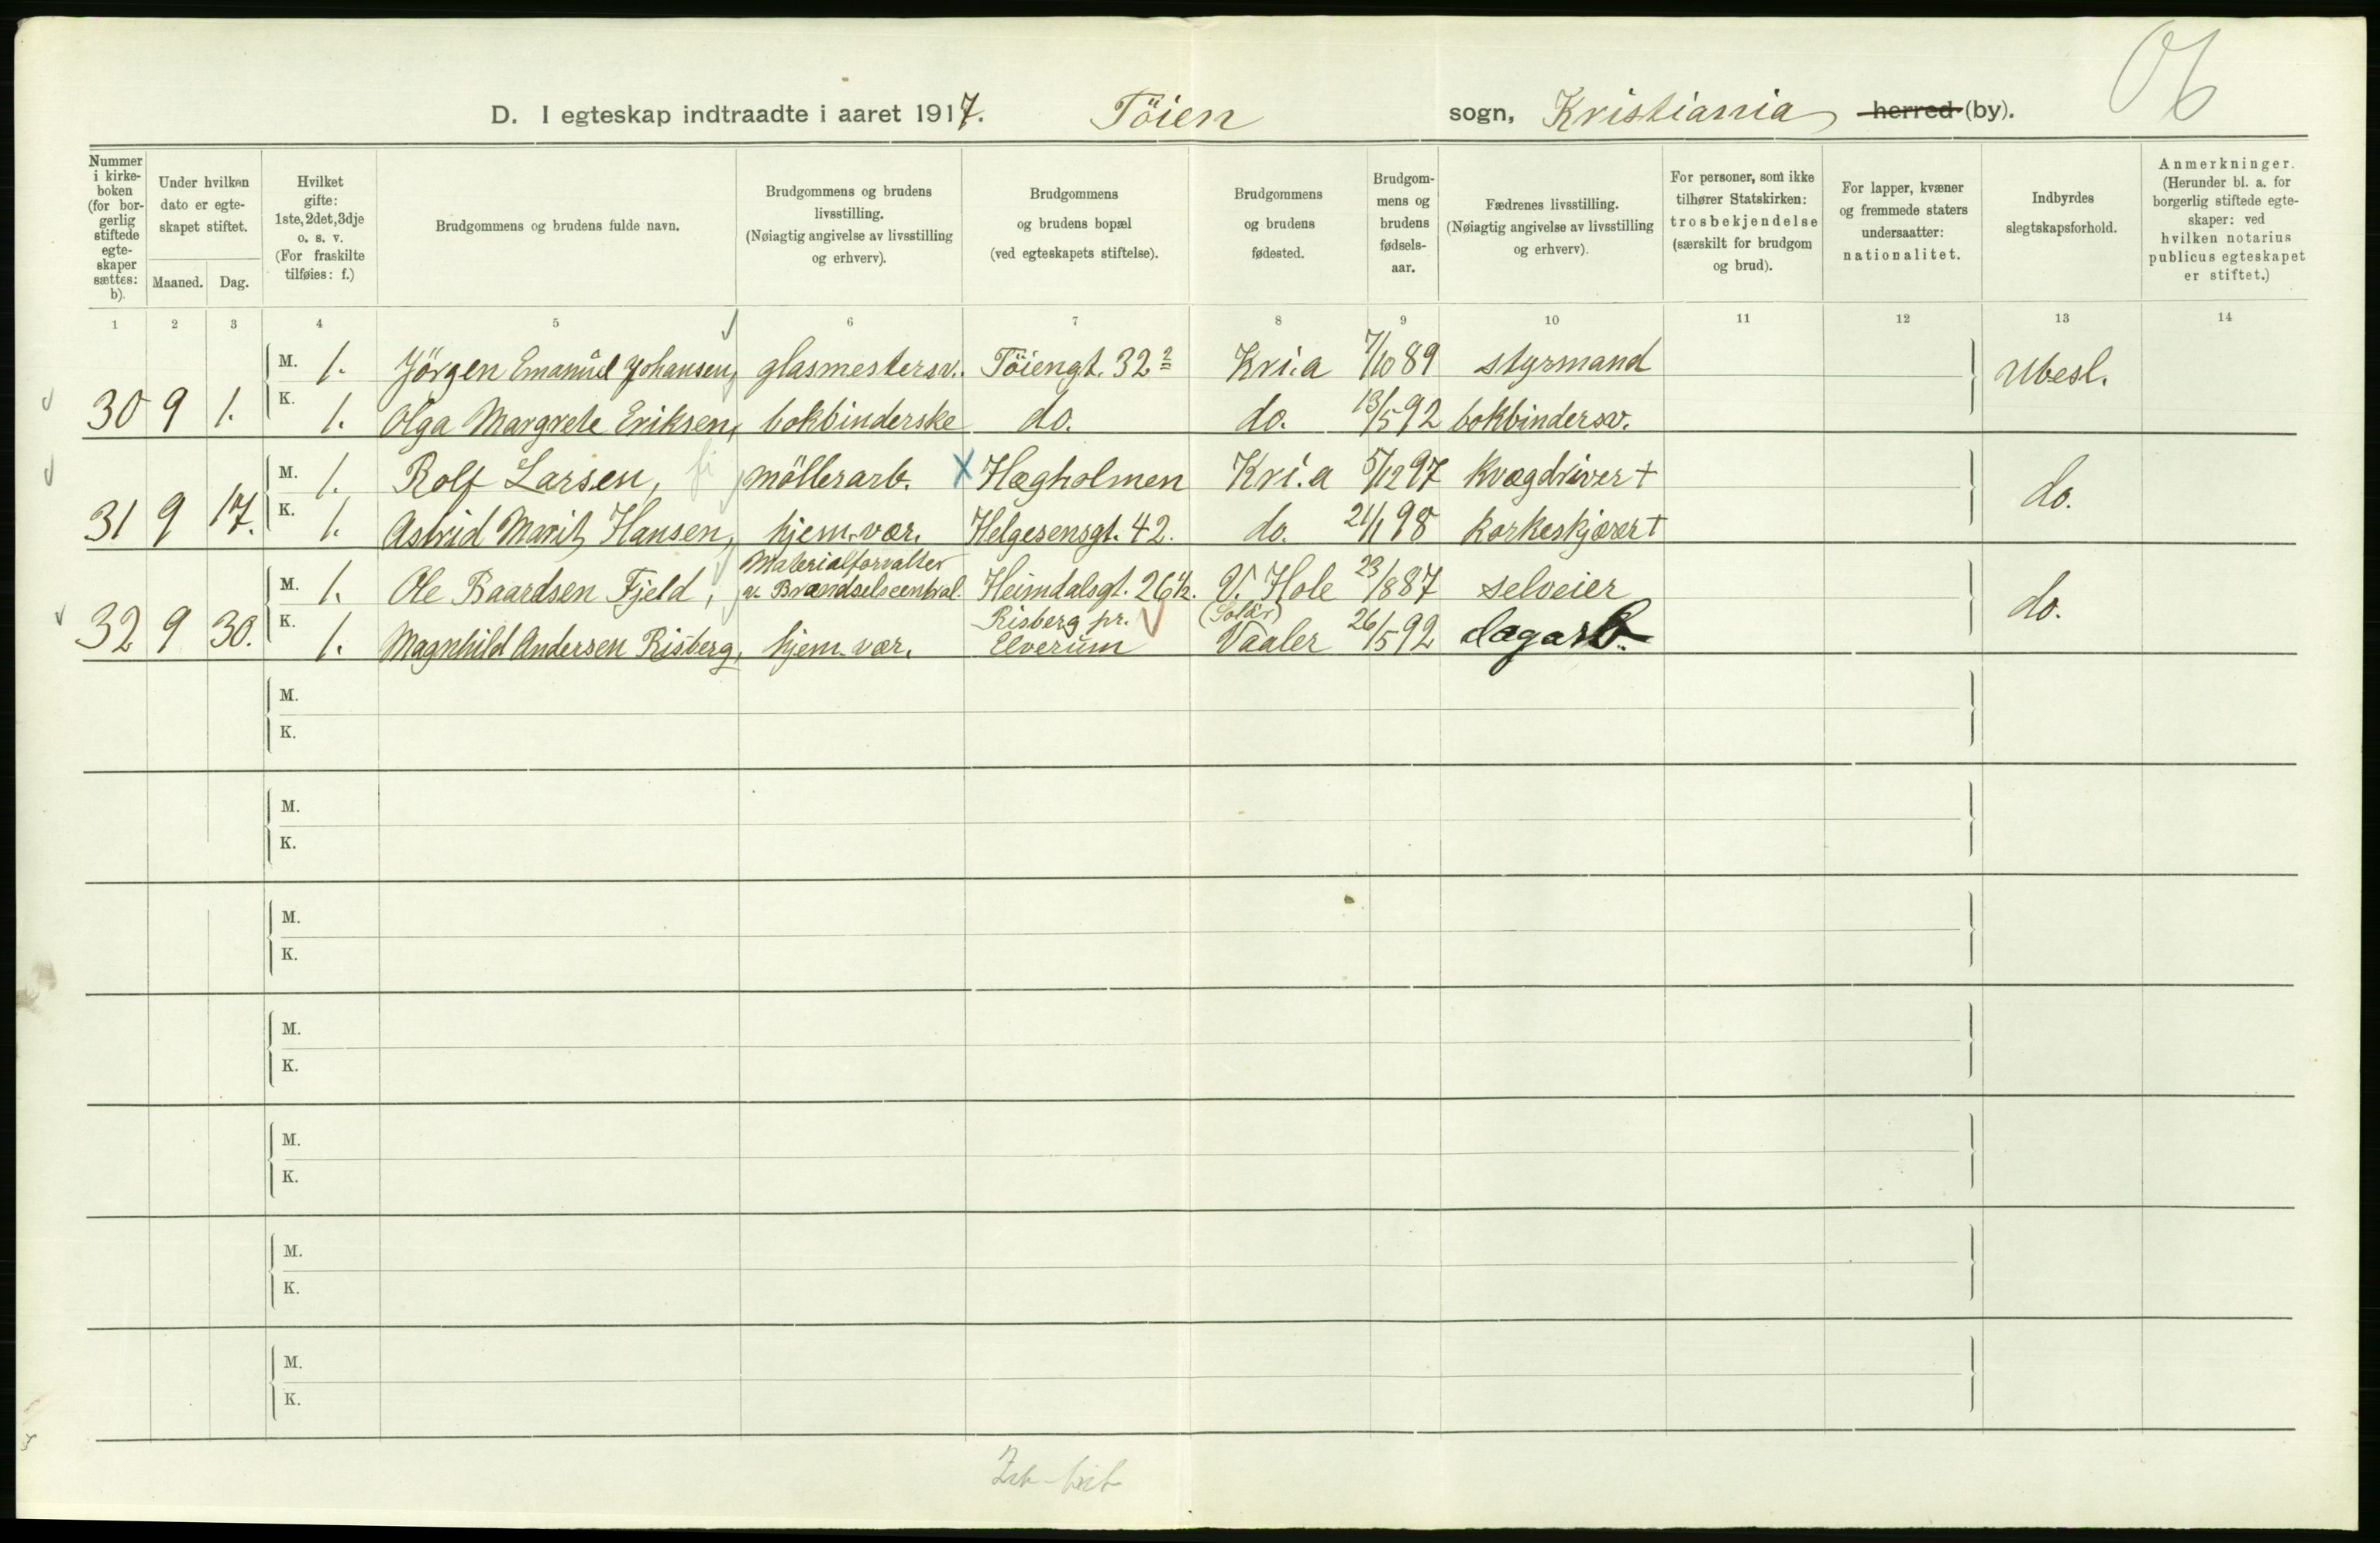 D. I egteskap indtraadte i aaret 1917. Töien sogn, Kristiania herred (by).
Nummer i kirkeboken (for borgerlig stiftede egteskaper sættes: b).
Under hvilken dato er egteskapet stiftet.
Maaned. Dag.
Hvilket gifte: 1ste, 2det, 3dje o. s. v. (For fraskilte tilføies: f.)
Brudgommens og brudens fulde navn.
Brudgommens og brudens livsstilling. (Nøiagtig angivelse av livsstilling og erhverv).
Brudgommens og brudens bopæl (ved egteskapets stiftelse).
Brudgommens og brudens fødested.
Brudgommens og brudens fødselsaar.
Fædrenes livsstilling. (Nøiagtig angivelse av livsstilling og erhverv).
For personer, som ikke tilhører Statskirken: trosbekjendelse (særskilt for brudgom og brud).
For lapper, kvæner og fremmede staters undersaatter: nationalitet.
Indbyrdes slegtskapsforhold.
Anmerkninger. (Herunder bl. a. for borgerlig stiftede egteskaper: ved hvilken notarius publicus egteskapet er stiftet.)
1 2 3 4 5 6 7 8 9 10 11 12 13 14
M. 1. Jörgen Emanuel Johansen, glasmestersv. Töiengt. 32 2 Kri.a 7/10 89 styrmand Ubesl.
30 9 1. K. 1. Olga Margrete Eriksen, bokbinderske do. do. 13/5 92 bokbindersv.
M. 1. Rolf Larsen, möllerarb. X Hægholmen Kri.a 5/12 97 Kvægdriver + do.
31 9 17. K. 1. Astrid Marit Hansen, hjem. vær. Helgesensgt. 42. do. 21/1 98 korkeskjærer +
Materialforvalter
M. 1. Ole Baardsen Fjeld, v. Brændselscentral. Heimdalsgt. 26 4/2. V. Hole 23/8 87 selveier do.
Risberg pr. (Solör)
32 9 30. K. 1. Magnhild Andersen Risberg, hjem. vær. Elverum Vaaler 26/5 92 dagarb.
M.
K.
M.
K.
M.
K.
M.
K.
M.
K.
M.
K.
M.
K.